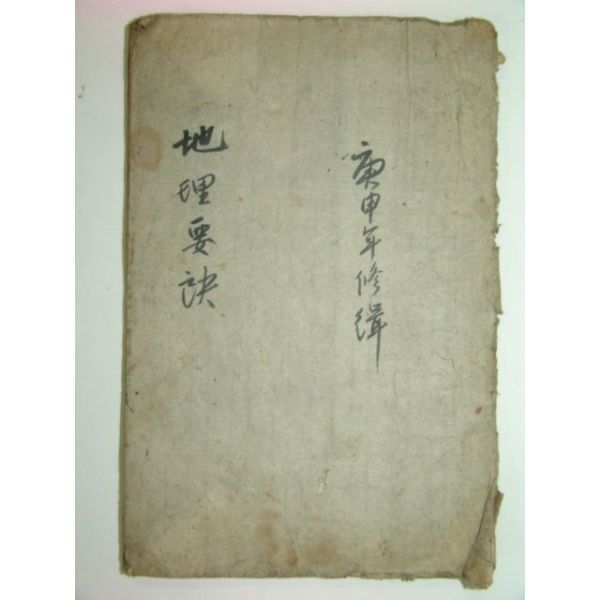 庚申年修緝
地理要訣